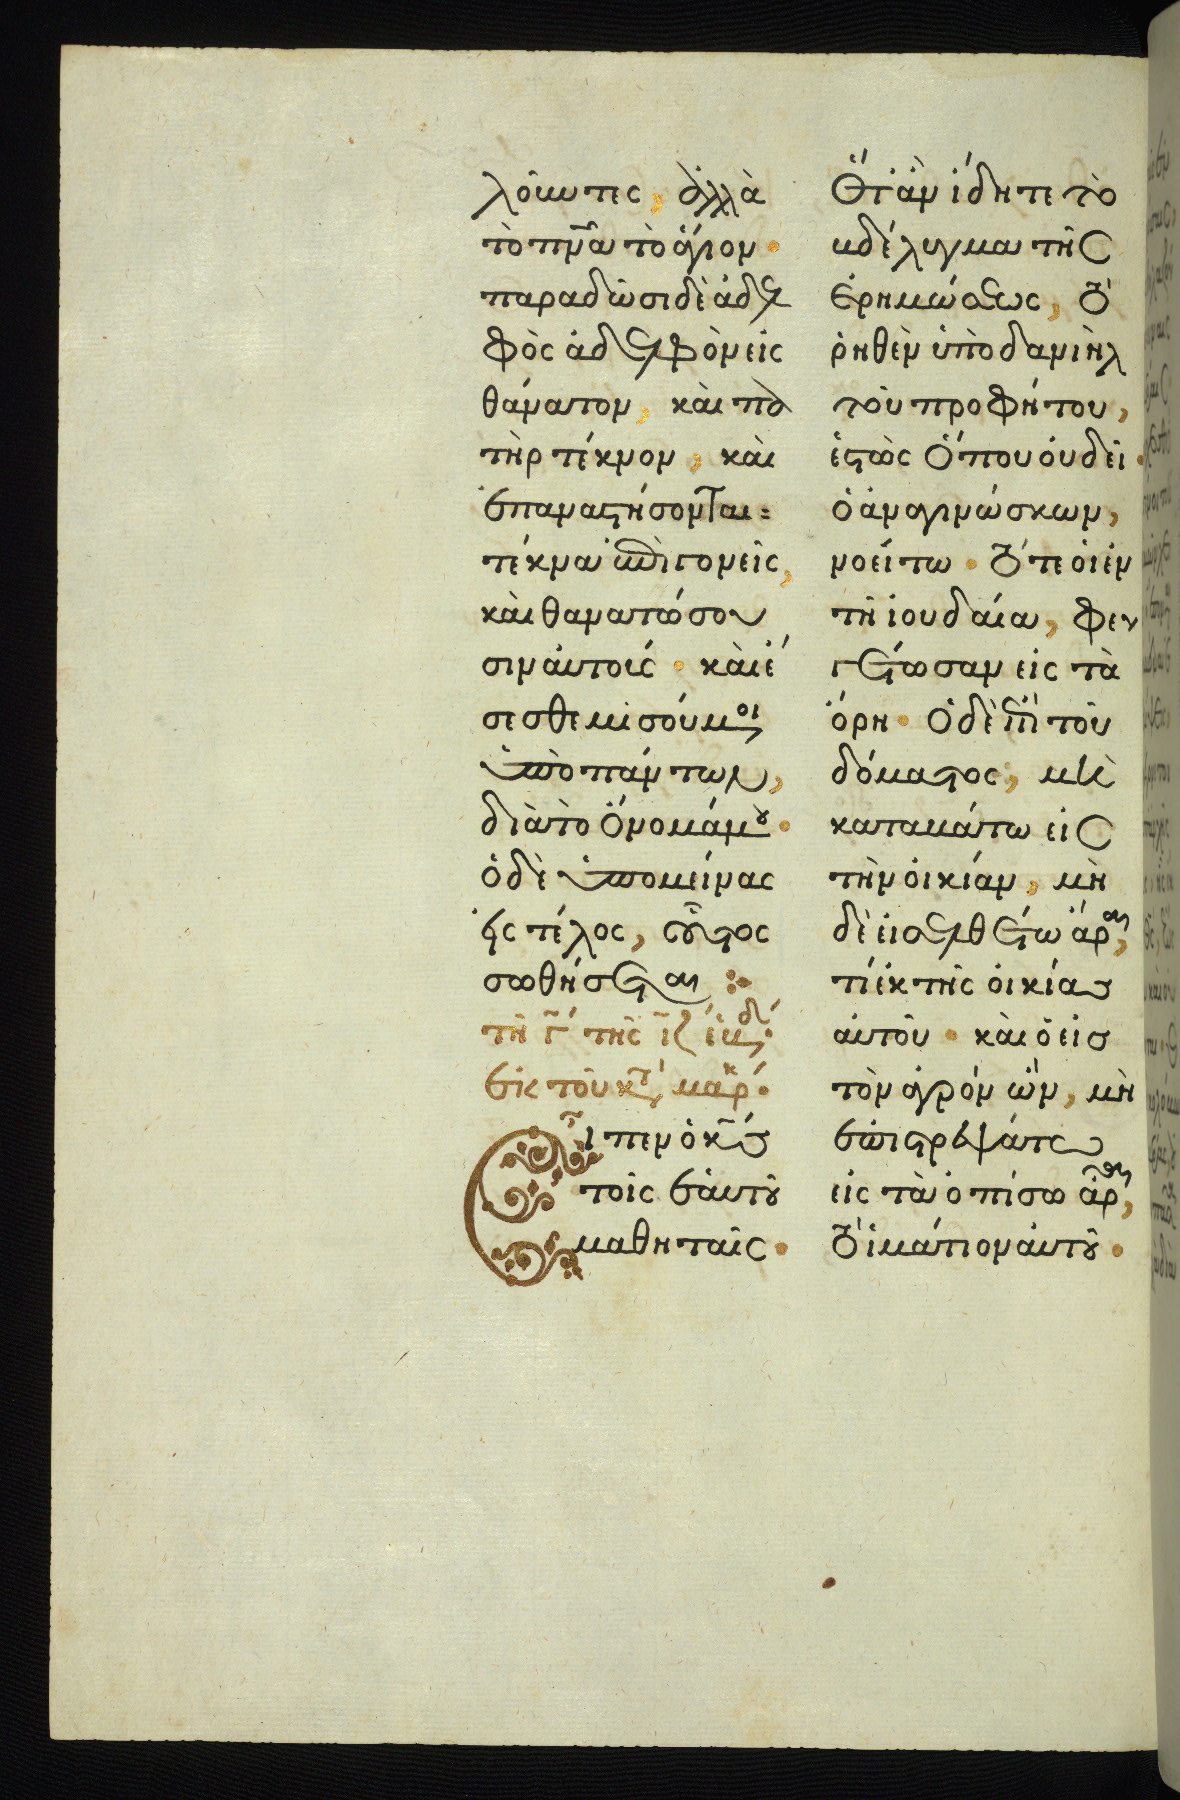 λοῦντες, ἀλλὰ
τὸ πν̅α τὸ ἅγιον.
παραδώσει δὲ ἀδελ
φὸς ἀδελφὸν εἰς
θάνατον, καὶ πα
τὴρ τέκνον, καὶ
ἐπαναστήσονται
τέκνα ἐπὶ γονεῖς,
καὶ θανατώσου
σιν αὐτούς. καὶ ἔ
σεσθε μισούμενοι
ὑπὸ πάντων,
διὰ τὸ ὄνομά μου.
ὁ δὲ ὑπομείνας
εἰς τέλος, οὗτος
σωθήσεται
τῇ γ̅ τῆς ιζ̅ ἑβδ.
ἐκ τοῦ κτ μαρ.
Εἶπεν ὁ κ̅ς
τοῖς ἑαυτοῦ
μαθηταῖς.
Ὅταν ἴδητε τὸ
βδέλυγμα τῆς
ἐρημώσεως, τὸ
ῥηθὲν ὑπὸ δανιὴλ
τοῦ προφήτου,
ἑστὼς ὅπου οὐ δεῖ.
ὁ ἀναγινώσκων,
νοείτω. τότε οἱ ἐν
τῇ ἰουδαία, φευ
γέτωσαν εἰς τὰ
ὄρη. ὁ δὲ ἐπὶ τοῦ
δόματος, μὴ
καταβάτω εἰς
τὴν οἰκίαν, μὴ
δὲ εἰσελθέτω ἆραι,
τί ἐκ τῆς οἰκίας
αὐτοῦ. καὶ ὁ εἰς
τὸν ἀγρὸν ὢν, μὴ
ἐπιστρεψάτω
εἰς τὰ ὀπίσω ἆραι,
τὸ ἱμάτιον αὐτοῦ.